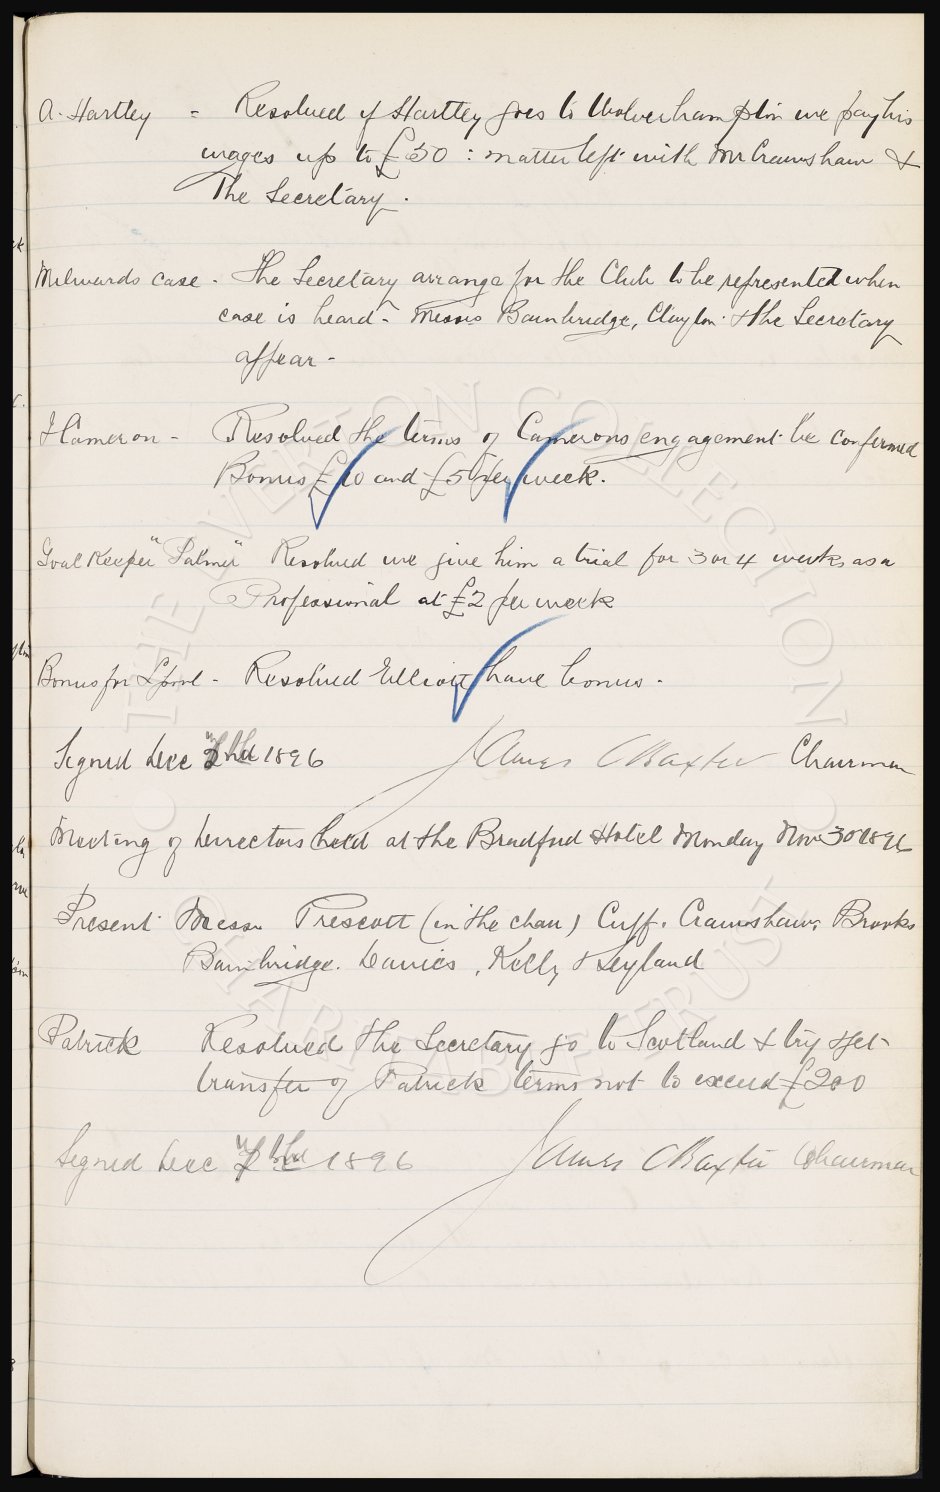 A. Hartley = Resolved if Hartley goes to Wolverhampton we pay his
wages up to £50 : matter left with Mr Crawshaw &
the Secretary.
Milwards case. The Secretary arrange for the Club to be represented when
case is heard - Messrs Bainbridge, Clayton & the Secretary
appear -
J Cameron - Resolved the terms of Camerons engagement be confirmed
Bonus £10 and £5 per week.
Goal Keeper "Palmer" Resolved we give him a trial for 3 or 4 weeks as a
Professional at £2 per week
Bonus for L'pool - Resolved Elliott have bonus.
Signed Dec 1896 James C Baxter Chairman
Meeting of Directors held at the Bradford Hotel Monday Nov 30 1896
Present Messrs Prescott (in the chair) Cuff, Crawshaw, Brooks
Bainbridge. Davies, Kelly & Leyland
Patrick Resolved the Secretary go to Scotland & try & get
transfer of Patrick terms not to exceed £200
Signed Dec 1896 James C Baxter Chairman
THE EVERTON COLLECTION
CHARITABLE TRUST